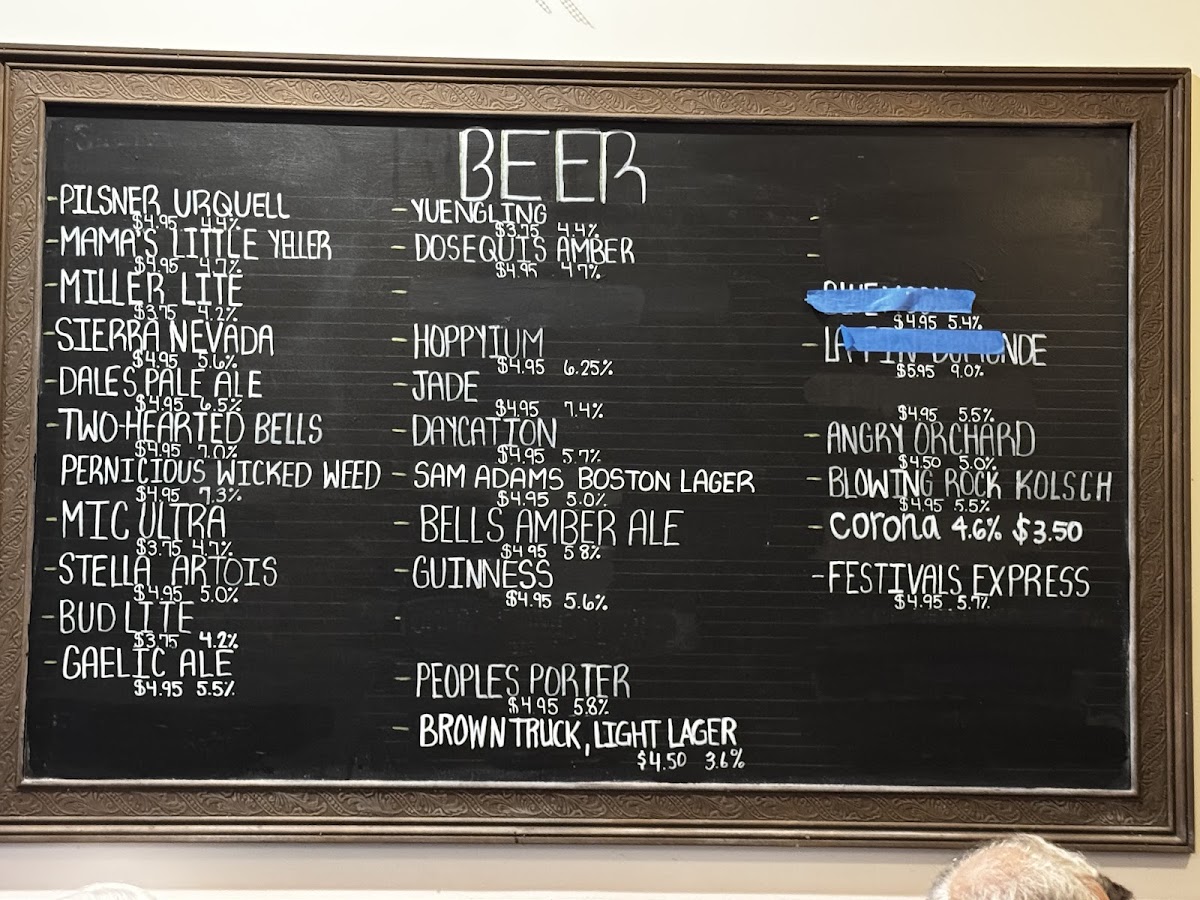 BEER
-PILSNER URQUELL
$4.95 4.4%
-MAMA'S LITTLE YELLER
$4.95 4.7%
-MILLER LITE
$3.75 4.2%
-SIERRA NEVADA
$4.95 5.6%
-DALES PALE ALE
$4.95 6.5%
-TWO-HEARTED BELLS
$4.95 7.0%
PERNICIOUS WICKED WEED
$4.95 7.3%
-MIC ULTRA
$3.75 4.7%
-STELLA ARTOIS
$4.95 5.0%
-BUD LITE
$3.75 4.2%
-GAELIC ALE
$4.95 5.5%
-YUENGLING
$3.75 4.4%
-DOSEQUIS AMBER
$4.95 4.7%
-HOPPYIUM
$4.95 6.25%
-JADE
$4.95 7.4%
-DAYCATION
$4.95 5.7%
-SAM ADAMS BOSTON LAGER
$4.95 5.0%
-BELLS AMBER ALE
$4.95 5.8%
-GUINNESS
$4.95 5.6%
-PEOPLES PORTER
$4.95 5.8%
-BROWN TRUCK, LIGHT LAGER
$4.50 3.6%
$4.95 5.4%
$5.95 9.0%
$4.95 5.5%
-ANGRY ORCHARD
$4.50 5.0%
-BLOWING ROCK KOLSCH
$4.95 5.5%
-corona 4.6% $3.50
-FESTIVALS EXPRESS
$4.95 5.7%